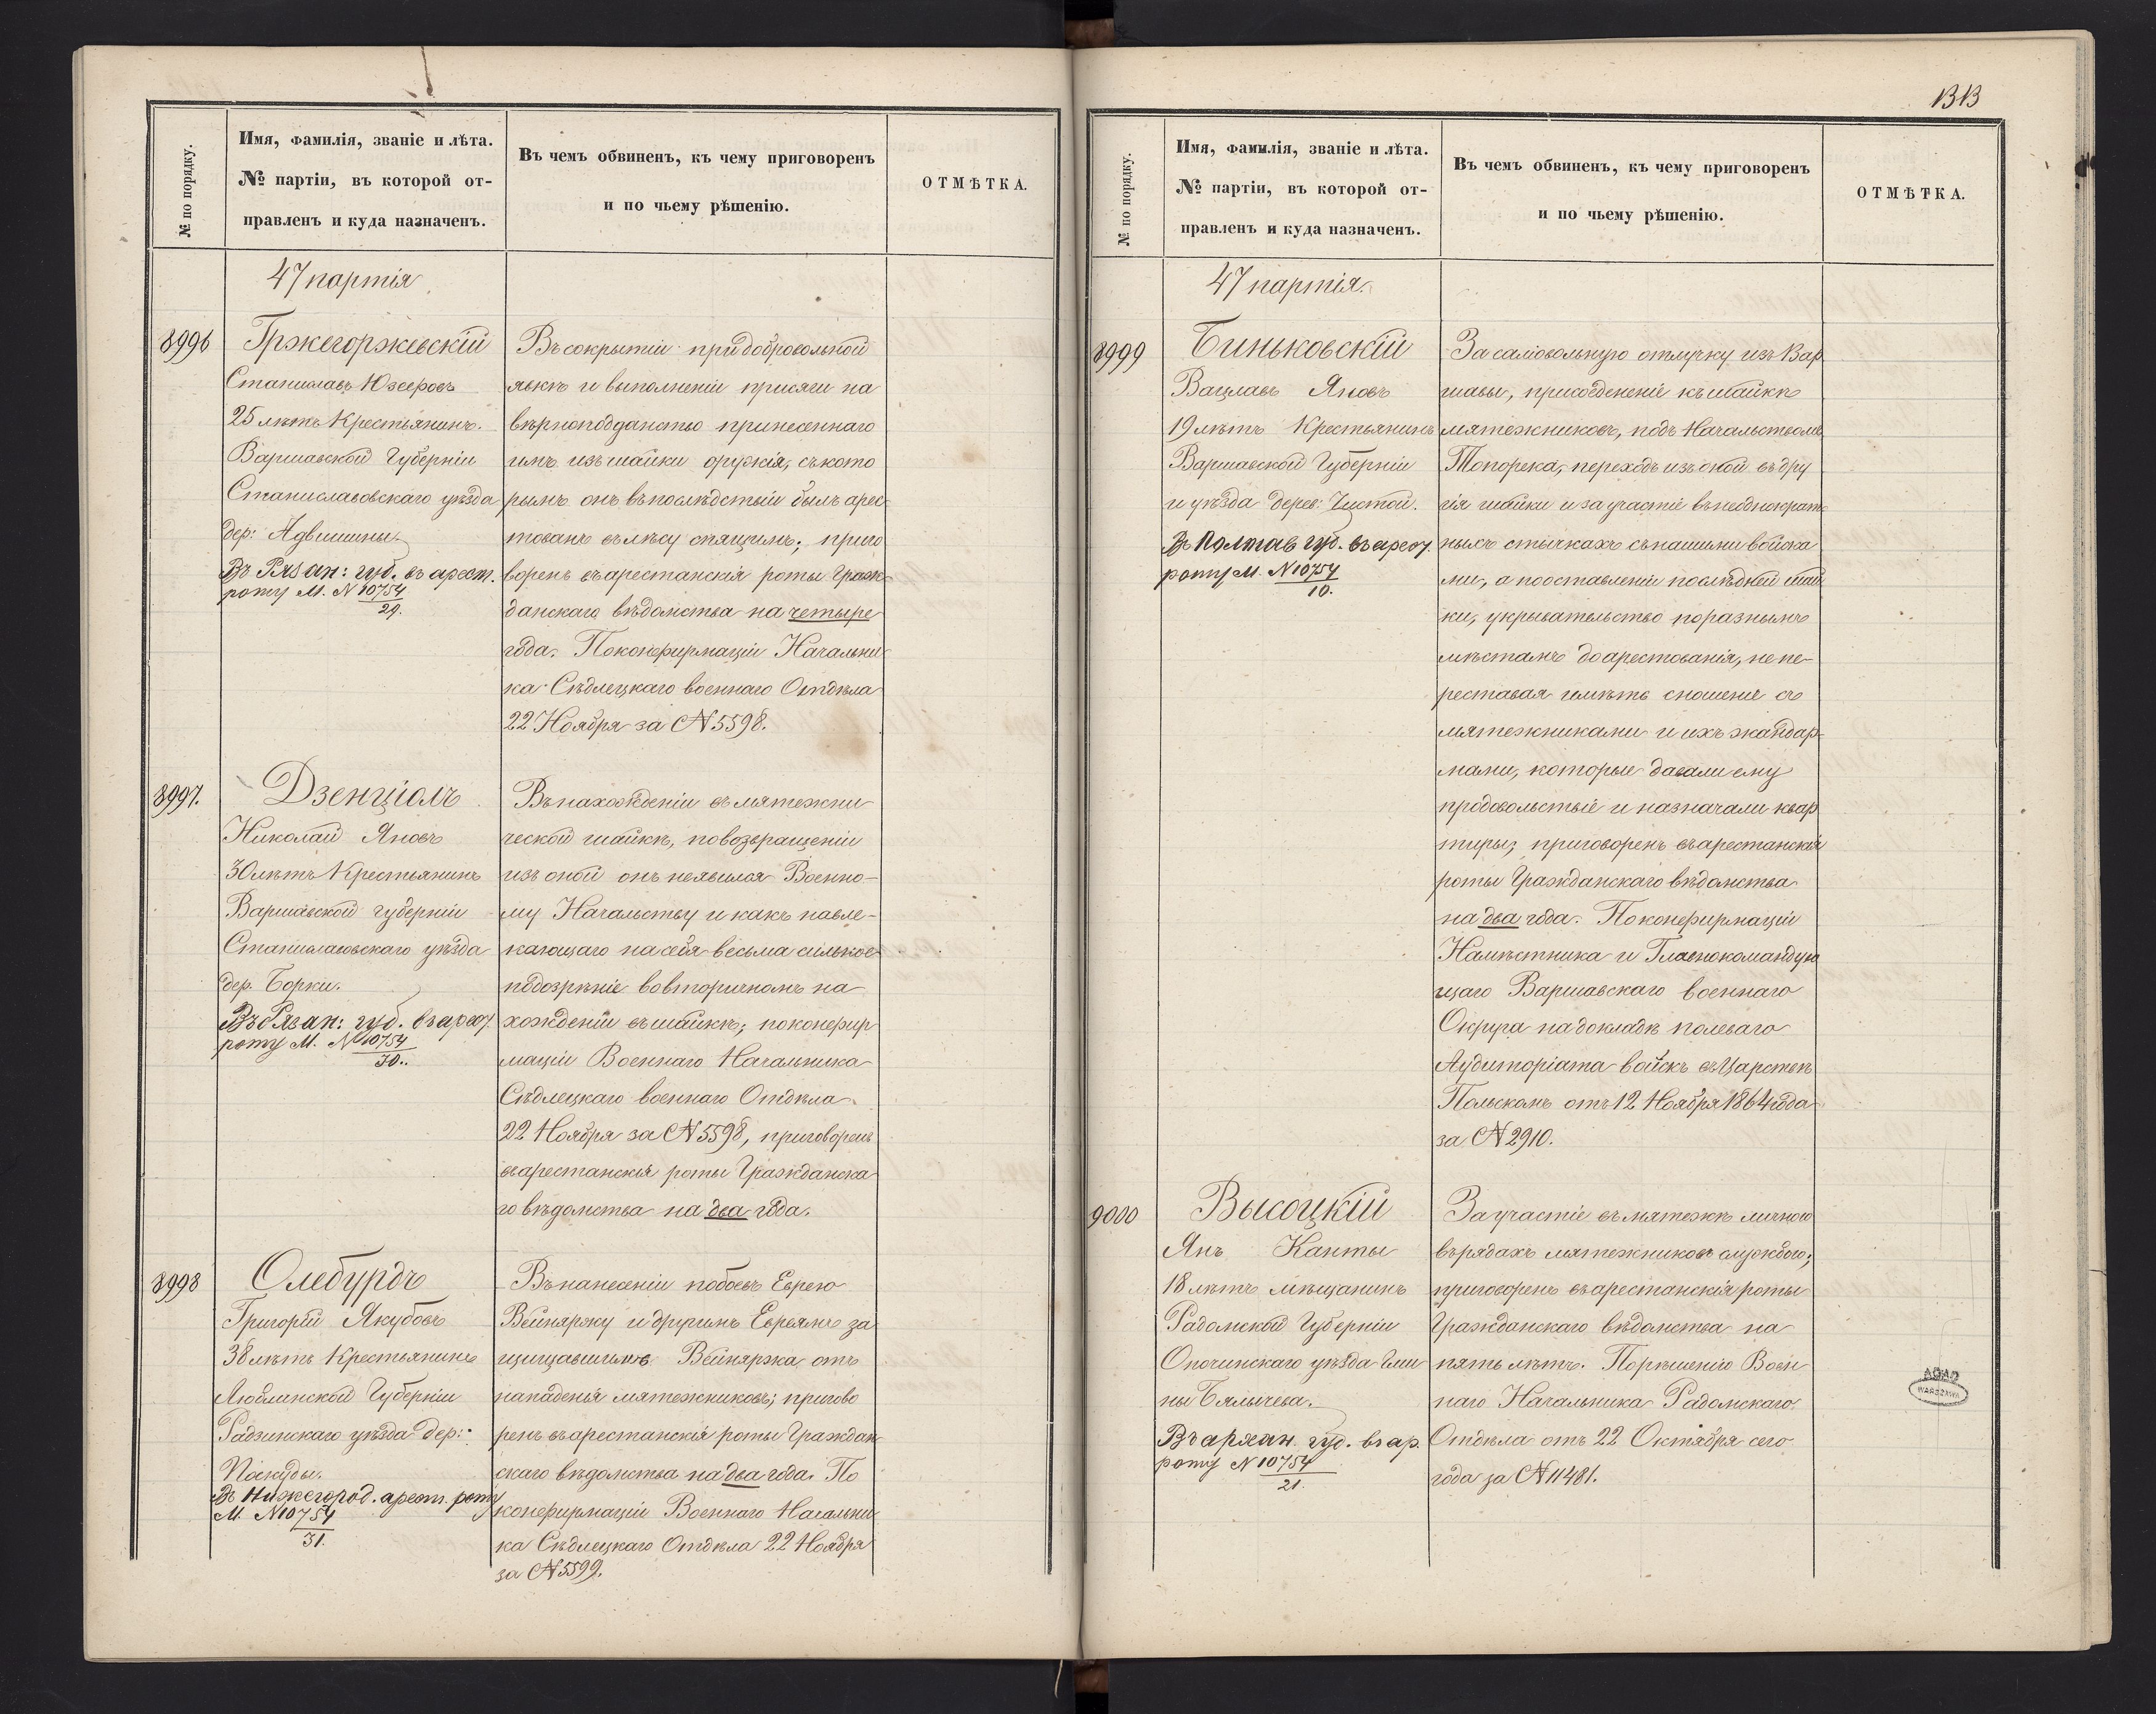 № по порядку.
Имя, фамилія, званіе и лѣта.
№ партіи, въ которой от-
правленъ и куда назначенъ.
Въ чемъ обвиненъ, къ чему приговоренъ
и по чьему рѣшенію.
ОТМѢТКА.
47 партія
8996
Гржегоржевскій
Станиславъ Юзефовъ
25 лѣтъ Крестьянинъ.
Варшавской Губерніи
Станиславовскаго уѣзда
дер:
Въ Рязан: губ. въ арест.
роту М. N 10754
29.
Въ сокрытіи при добровольной
явкѣ и выполненіи присяги на
вѣрноподданство принесеннаго
имъ изъ шайки оружія, съ кото
рымъ онъ въ послѣдствіи былъ арес
тованъ въ лѣсу спящимъ; приго
воренъ въ арестанскія роты Граж
данскаго вѣдомства на четыре
года. По конфирмаціи Начальни
ка Сѣдлецкаго военнаго Отдѣла
22 Ноября за N 5598.
8997.
Дзенціолъ
Николай Яновъ
30 лѣтъ Крестьянинъ
Варшавской губерніи
Станиславовскаго уѣзда
дер. Борки.
Въ Рязан: губ. въ арест.
роту М. N 10754
30.
Въ нахожденіи въ мятежни
ческой шайкѣ, по возвращеніи
изъ оной онъ неявился Военно-
му Начальству и какъ навле-
кающаго на себя весьма сильное
подозрѣніе во вторичномъ на
хожденіи въ шайкѣ; по конфир
маціи Военнаго Начальника
Сѣдлецкаго военнаго Отдѣла
22 Ноября за N 5598, приговоренъ
въ арестанскія роты Гражданска
го вѣдомства на два года.
8998
Олебурдъ
Григорій Якубовъ
38 лѣтъ Крестьянинъ
Люблинской Губерніи
Радзинскаго уѣзда дер:
Въ Нижегород. арест. роту
М. N 10754
31.
Въ нанесеніи побоевъ Еврею
Вейняржу и другимъ Евреямъ за
щищавшимъ Вейняржа отъ
нападенія мятежниковъ; пригово
ренъ въ арестанскія роты Граждан
скаго вѣдомства на два года. По
конфирмаціи Военнаго Начальни
ка Сѣдлецкаго Отдѣла 22 Ноября
за N 5599.
1313
№ по порядку.
Имя, фамилія, званіе и лѣта.
№ партіи, въ которой от-
правленъ и куда назначенъ.
Въ чемъ обвиненъ, къ чему приговоренъ
и по чьему рѣшенію.
ОТМѢТКА.
47 партія.
8999
Биньковскій
Вацлавъ Яновъ
19 лѣтъ Крестьянинъ
Варшавской Губерніи
и уѣзда дерев: Чистой.
Въ Полтав губ. въ арест.
роту М. N 10754
10.
За самовольную отлучку изъ Вар
шавы, присоединеніе къ шайкѣ
мятежниковъ, подъ Начальствомъ
Топорека, переходъ изъ оной въ дру
гія шайки и за участіе въ неоднократ
ныхъ стычкахъ съ нашими войска
ми, а по оставленіи послѣдней шай
ки, укрывательство по разнымъ
мѣстамъ до арестованія, не пе-
реставая имѣть сношеніе съ
мятежниками и ихъ жандар
мами, которые давали ему
продовольствіе и назначали квар
тиры; приговоренъ въ арестанскія
роты Гражданскаго вѣдомства
на два года. По конфирмаціи
Намѣстника и Главнокомандую
щаго Варшавскаго военнаго
Округа на докладѣ полеваго
Аудиторіата войскъ въ Царствѣ
Польскомъ отъ 12 Ноября 1864 года
за N 2910.
9000
Высоцкій
Янъ Канты
18 лѣтъ мѣщанинъ
Радомской Губерніи
Опочинскаго уѣзда Гми
ны Бялычева.
Въ архан. губ. въ ар.
роту N 10754
21.
За участіе въ мятежѣ личною
въ рядахъ мятежниковъ службою;
приговоренъ въ арестанскія роты
Гражданскаго вѣдомства на
пять лѣтъ. По рѣшенію Воен
наго Начальника Радомскаго
Отдѣла отъ 22 Октября сего
года за N 11481.
AGAD
WARSZAWA